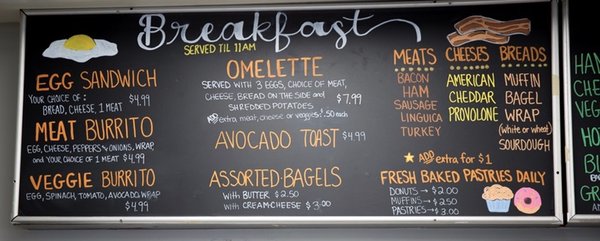 Breakfast
SERVED TIL 11AM
EGG SANDWICH
YOUR CHOICE OF:
BREAD, CHEESE, 1 MEAT $4.99
MEAT BURRITO
EGG, CHEESE, PEPPERS & ONIONS, WRAP,
and YOUR CHOICE OF 1 MEAT $4.99
VEGGIE BURRITO
EGG, SPINACH, TOMATO, AVOCADO, WRAP
$4.99
OMELETTE
SERVED WITH 3 EGGS, CHOICE OF MEAT,
CHEESE, BREAD ON THE SIDE AND
SHREDDED POTATOES $7.99
ADD extra meat, cheese or veggies! .50 each
AVOCADO TOAST $4.99
ASSORTED BAGELS
WITH BUTTER $2.50
WITH CREAM CHEESE $3.00
MEATS
BACON
HAM
SAUSAGE
LINGUICA
TURKEY
CHEESES
AMERICAN
CHEDDAR
PROVOLONE
BREADS
MUFFIN
BAGEL
WRAP
(white or wheat)
SOURDOUGH
ADD extra for $1
FRESH BAKED PASTRIES DAILY
DONUTS → $2.00
MUFFINS → $2.50
PASTRIES → $3.00